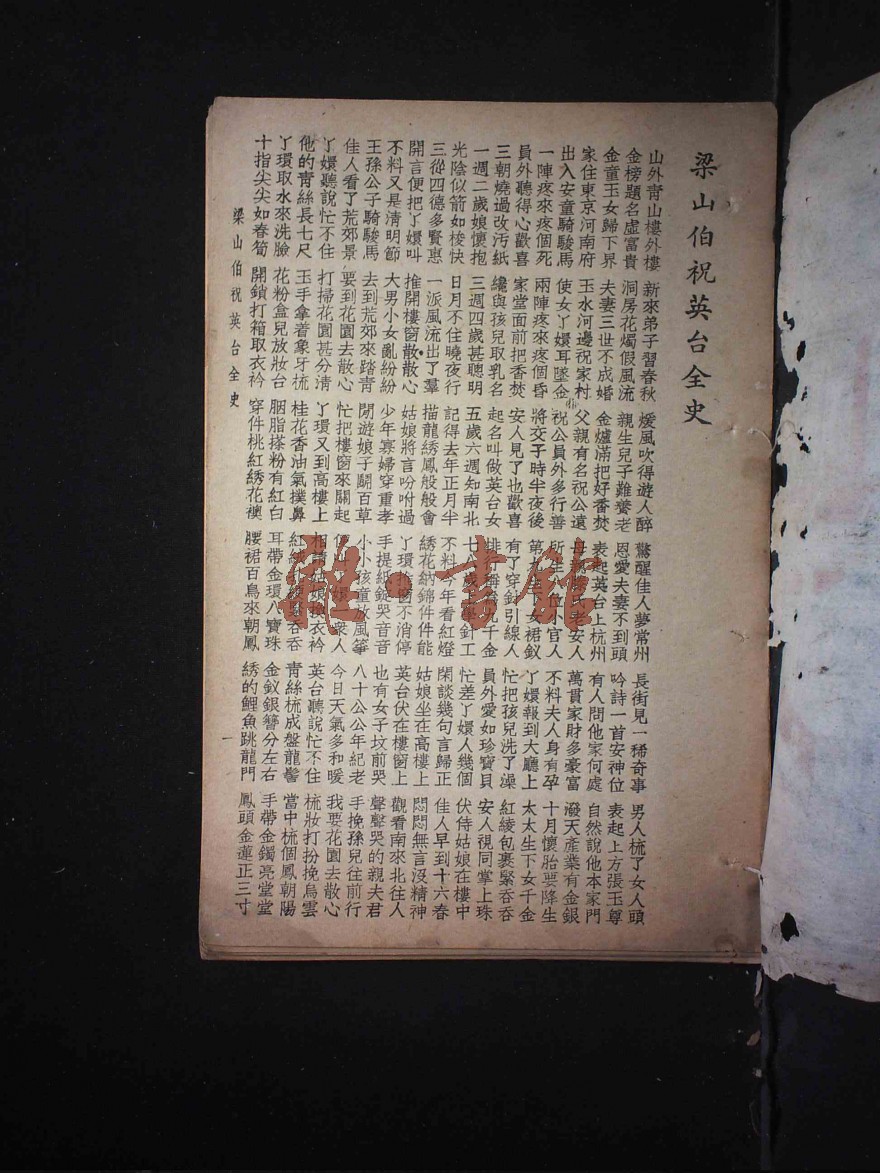 梁山伯祝英台全史
山外青山樓外樓 新來弟子習春秋 煖風吹得遊人醉 驚醒佳人夢常州 長街見一稀奇事 男人梳了女人頭
金榜題名虛富貴 洞房花燭假風流 親生兒子難養老 恩愛夫妻不到頭 吟詩一首安神位 表起上方張玉尊
金童玉女歸下界 夫妻三世不成婚 金爐滿把好香焚 表起英台上杭州 有人問他家何處 自然說他本家門
家住東京河南府 玉水河邊祝家村 父親有名祝公遠 母親氏老安人 萬貫家財多豪富 潑天產業有金銀
出入安童騎駿馬 使女丫嬛耳墜金 祝公員外多行善 所生位官人 不料夫人身有孕 十月懷胎要降生
一陣疼來疼個死 兩陣疼來疼個昏 將交子時半夜後 第女裙釵 丫嬛報到大廳上 太太生下女千金
員外聽得心歡喜 家堂面前把香焚 安人見了也歡喜 有了穿針引線人 忙把孩兒洗了澡 紅綾包裹緊吞吞
三朝燒過改汚紙 纔與孩兒取乳名 起名叫做英台女 祝千金 員外愛如珍寶貝 安人視同掌上珠
一週二歲娘懷抱 三週四歲甚聰明 五歲六週知南北 七八歲針工 忙差丫嬛人幾個 伏侍姑娘在樓中
光陰似箭如梭快 日月不住曉夜行 記得去年正月半 不料今年看紅燈 閑談幾句言歸正 佳人早到十六春
三從四德多賢惠 一派風流出了羣 描龍綉鳳般般會 綉花納錦件件能 姑娘坐在高樓上 悶悶無言沒精神
開言便把丫嬛叫 推開樓窗散散心 姑娘將言吩咐過 丫環窗不消停 英台伏在樓窗上 觀看南來北往人
不料又是清明節 大男小女亂紛紛 少年寡婦穿重孝 手提紙錠哭音音 也有女子坟前哭 聲聲哭的親夫君
王孫公子騎駿馬 去到荒郊來踏青 閒遊娘子鬬百草 小小孩童放風箏 八十公公年紀老 手挽孫兒往前行
佳人看了荒郊景 要到花園去散心 忙把樓窗來關起 衆人 今日天氣多和暖 我要花園去散心
丫嬛聽說忙不住 打掃花園甚分清 丫環又到高樓上 相請姑娘換衣衿 英台聽說忙不住 梳妝打扮挽烏雲
他的青絲長七尺 玉手拿着象牙梳 桂花香油氣撲鼻 紅絨緊吞吞 青絲梳成盤龍髻 當中梳個鳳朝陽
丫環取水來洗臉 花粉盒兒放妝台 胭脂搽粉有紅白 耳帶金環八寶珠 金釵銀簪分左右 手帶金鐲亮堂堂
十指尖尖如春筍 開鎖打箱取衣衿 穿件桃紅綉花襖 腰裙百鳥來朝鳳 綉的鯉魚跳龍門 鳳頭金蓮正三寸
梁山伯祝英台全史
一
雅書館